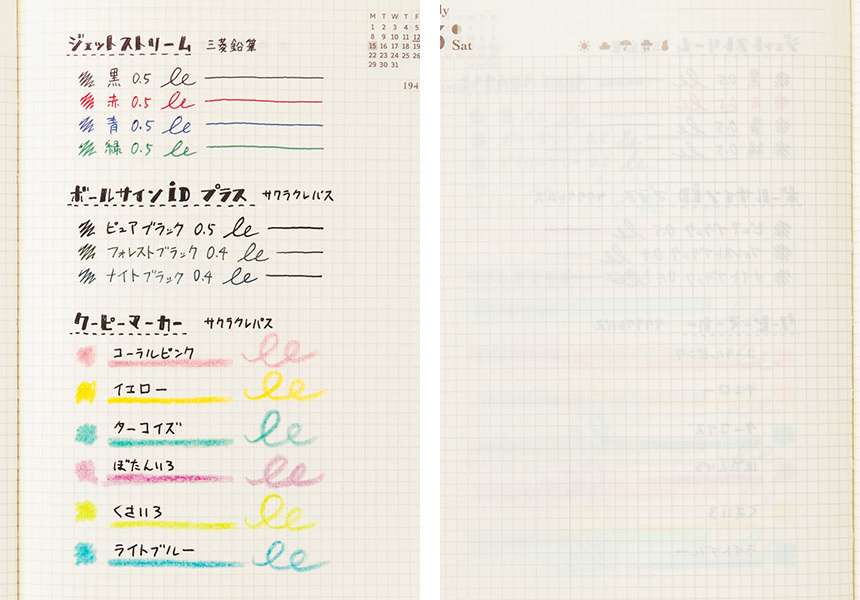 M T W T F
1 2 3 4 5
8 9 10 11 12
15 16 17 18 19
22 23 24 25 26
29 30 31
194
ジェットストリーム 三菱鉛筆
黒 0.5 le
赤 0.5 le
青 0.5 le
緑 0.5 le
ボールサインiD プラス サクラクレパス
ピュアブラック 0.5 le
フォレストブラック 0.4 le
ナイトブラック 0.4 le
クーピーマーカー サクラクレパス
コーラルピンク le
イエロー le
ターコイズ le
ぼたんいろ le
くさいろ le
ライトブルー le
ly
Sat